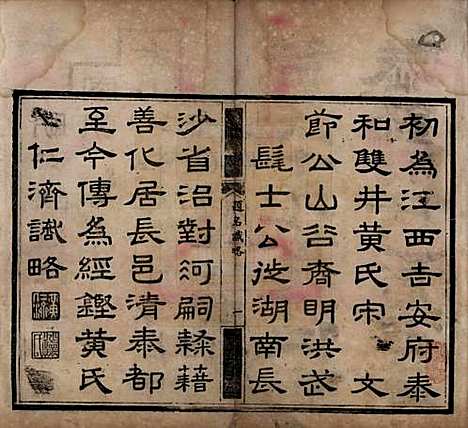 初為江西吉安府泰
和雙井黃氏宋 文
節公山谷裔明洪武
髦士公徙湖南長
沙省沿對河嗣隸籍
善化居長邑清泰都
至今傳為經鏗黃氏
仁濟識略